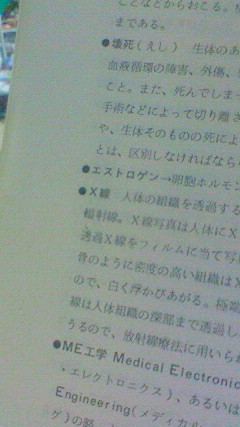 ことなどからおこる。
まである。
●壊死(えし) 生体のあ
血液循環の障害、外傷、
こと。まだ、死んでしまっ
手術などによって切り離さ
や、生体そのものの死によ
とは、区別しなければなら
●エストロゲン→卵胞ホルモン
●X線 人体の組織を透過する
輻射線。X線写真は人体にX
透過X線をフィルムに当て写
骨のように密度の高い組織はX
ので、白く浮かびあがる。極端
線は人体組織の深部まで透過し
うるので、放射線療法に用いら
●ME工学 Medical Electronic
・エレクトロニクス)、あるいは
Engineering(メディカル